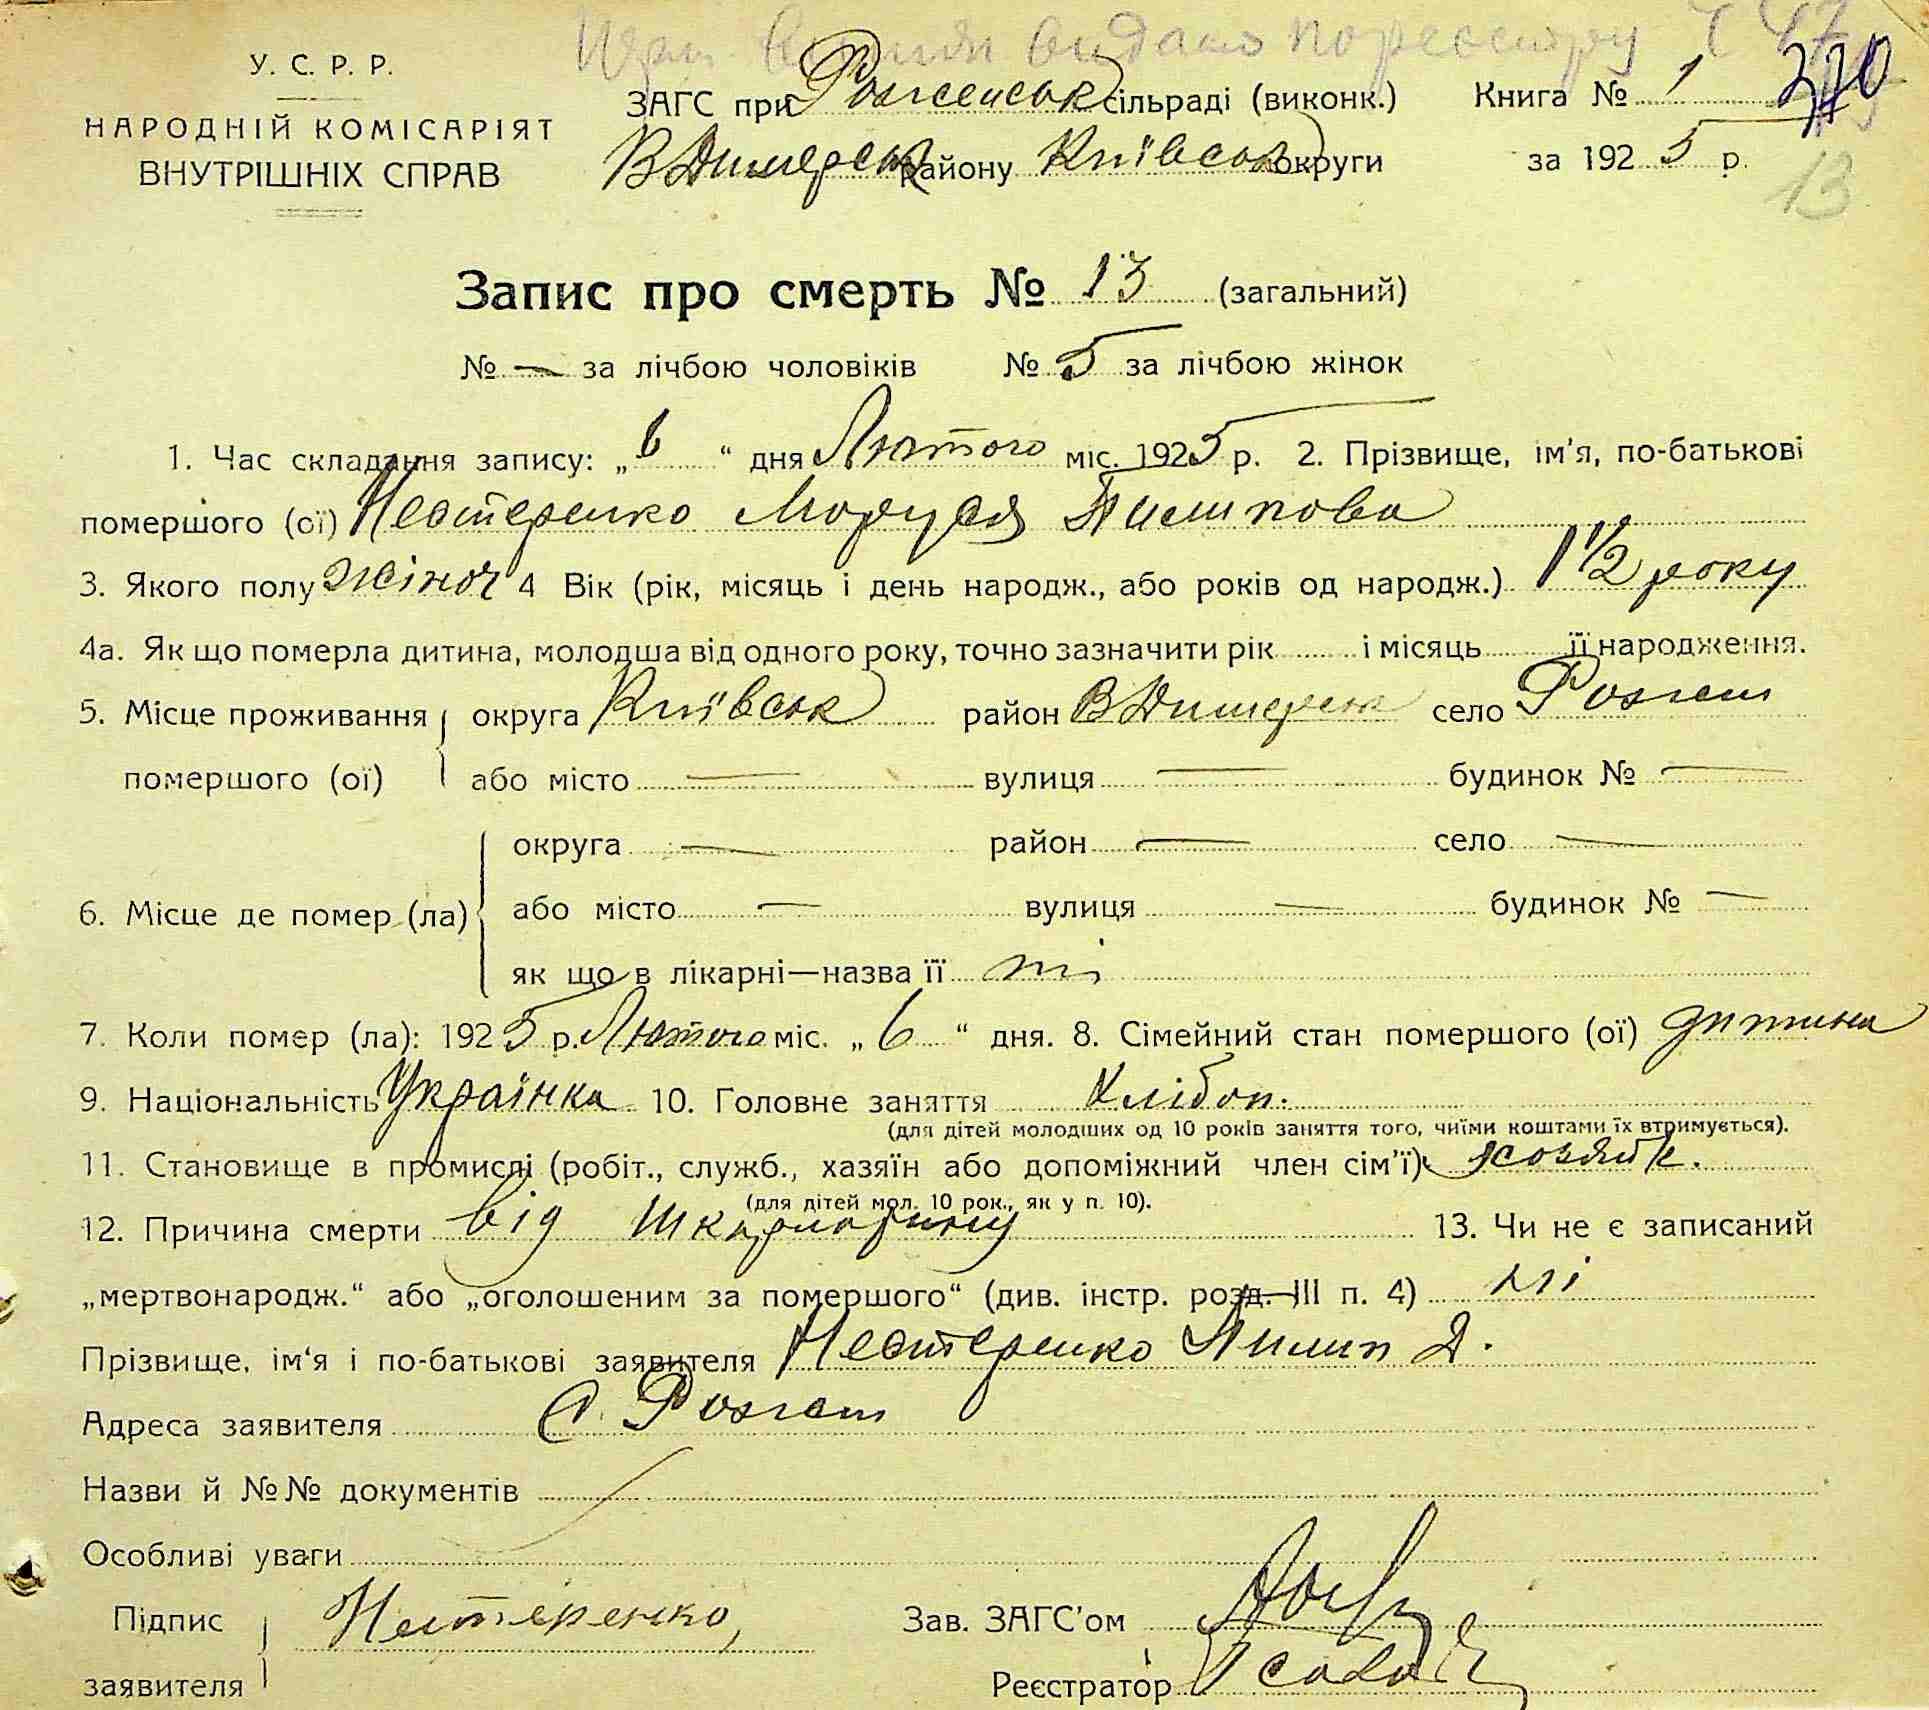 видано по реєстру
У. С. Р. Р.
НАРОДНІЙ КОМІСАРІЯТ
ВНУТРІШНІХ СПРАВ
ЗАГС при Роженськ сільраді (виконк.) Книга № 1 370
ВДимерськ району Київськ округи за 1925 р.
13
Запис про смерть № 13 (загальний)
№ — за лічбою чоловіків № 5 за лічбою жінок
1. Час складання запису: „6“ дня Лютого міс. 1925 р. 2. Прізвище, ім'я, по-батькові
помершого (ої) Нестеренко Маруся Пилипова
3. Якого полу жіноч 4 Вік (рік, місяць і день народж., або років од народж.) 1 1/2 року
4а. Як що померла дитина, молодша від одного року, точно зазначити рік і місяць її народження.
5. Місце проживання округа Київськ район ВДимерськ село Рожен
помершого (ої) або місто — вулиця — будинок № —
округа — район — село —
6. Місце де помер (ла) або місто — вулиця — будинок № —
як що в лікарні—назва її ні
7. Коли помер (ла): 1925 р. Лютого міс. „6“ дня. 8. Сімейний стан помершого (ої) дитина
9. Національність Українка 10. Головне заняття Хлібоп.
(для дітей молодших од 10 років заняття того, чиїми коштами їх втримується).
11. Становище в промислі (робіт., служб., хазяїн або допоміжний член сім'ї)
(для дітей мол. 10 рок., як у п. 10).
12. Причина смерти від Шкарлатину 13. Чи не є записаний
„мертвонародж.“ або „оголошеним за помершого“ (див. інстр. розд. III п. 4) ні
Прізвище, ім'я і по-батькові заявителя Нестеренко Пилип Д.
Адреса заявителя С. Рожен
Назви й №№ документів
Особливі уваги
Підпис Нестеренко Зав. ЗАГС'ом
заявителя Реєстратор